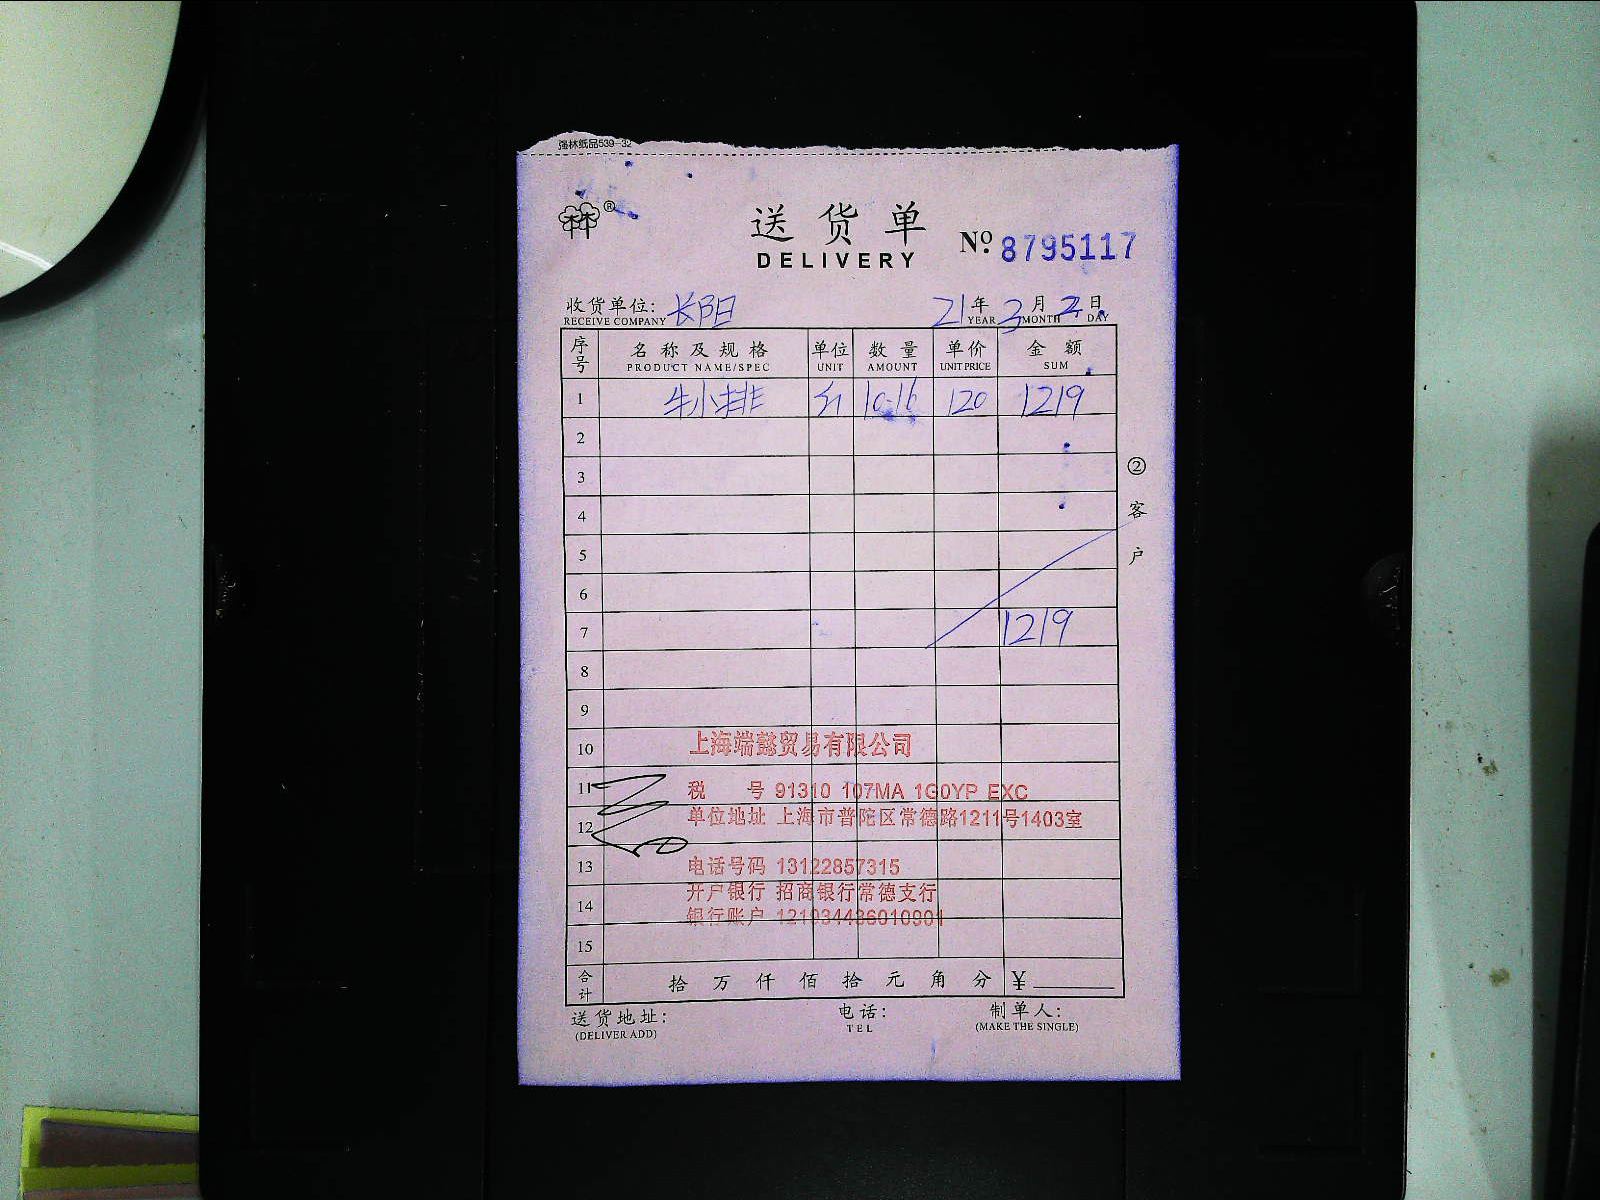 强林纸品539-32
林®
送货单
DELIVERY
№ 8795117
收货单位: 长阳 21年3月2日
RECEIVE COMPANY YEAR MONTH DAY
序号 名称及规格 单位 数量 单价 金额
PRODUCT NAME/SPEC UNIT AMOUNT UNIT PRICE SUM
1 牛小排 10.16 120 1219
2
3
4
5
6
7 1219
8
9
10
11
12
13
14
15
②客户
上海端懿贸易有限公司
税 号 91310 107MA 1G0YP EXC
单位地址 上海市普陀区常德路1211号1403室
电话号码 13122857315
开户银行 招商银行常德支行
银行账户 121934436010901
合计 拾 万 仟 佰 拾 元 角 分 ¥
送货地址: 电话: 制单人:
(DELIVER ADD) TEL (MAKE THE SINGLE)